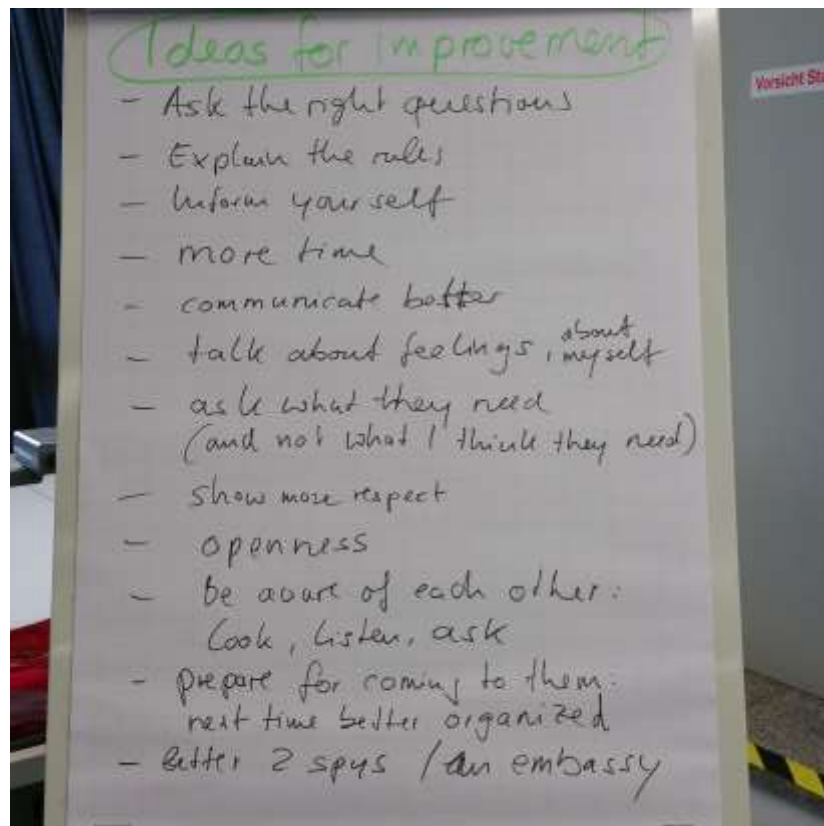 Ideas for improvement
Vorsicht Stu
- Ask the right questions
- Explain the rules
- Inform yourself
- more time
- communicate better
- talk about feelings, about myself
- ask what they need
(and not what I think they need)
- show more respect
- openness
- be aware of each other:
look, listen, ask
- prepare for coming to them.
next time better organized
- better 2 spys / an embassy